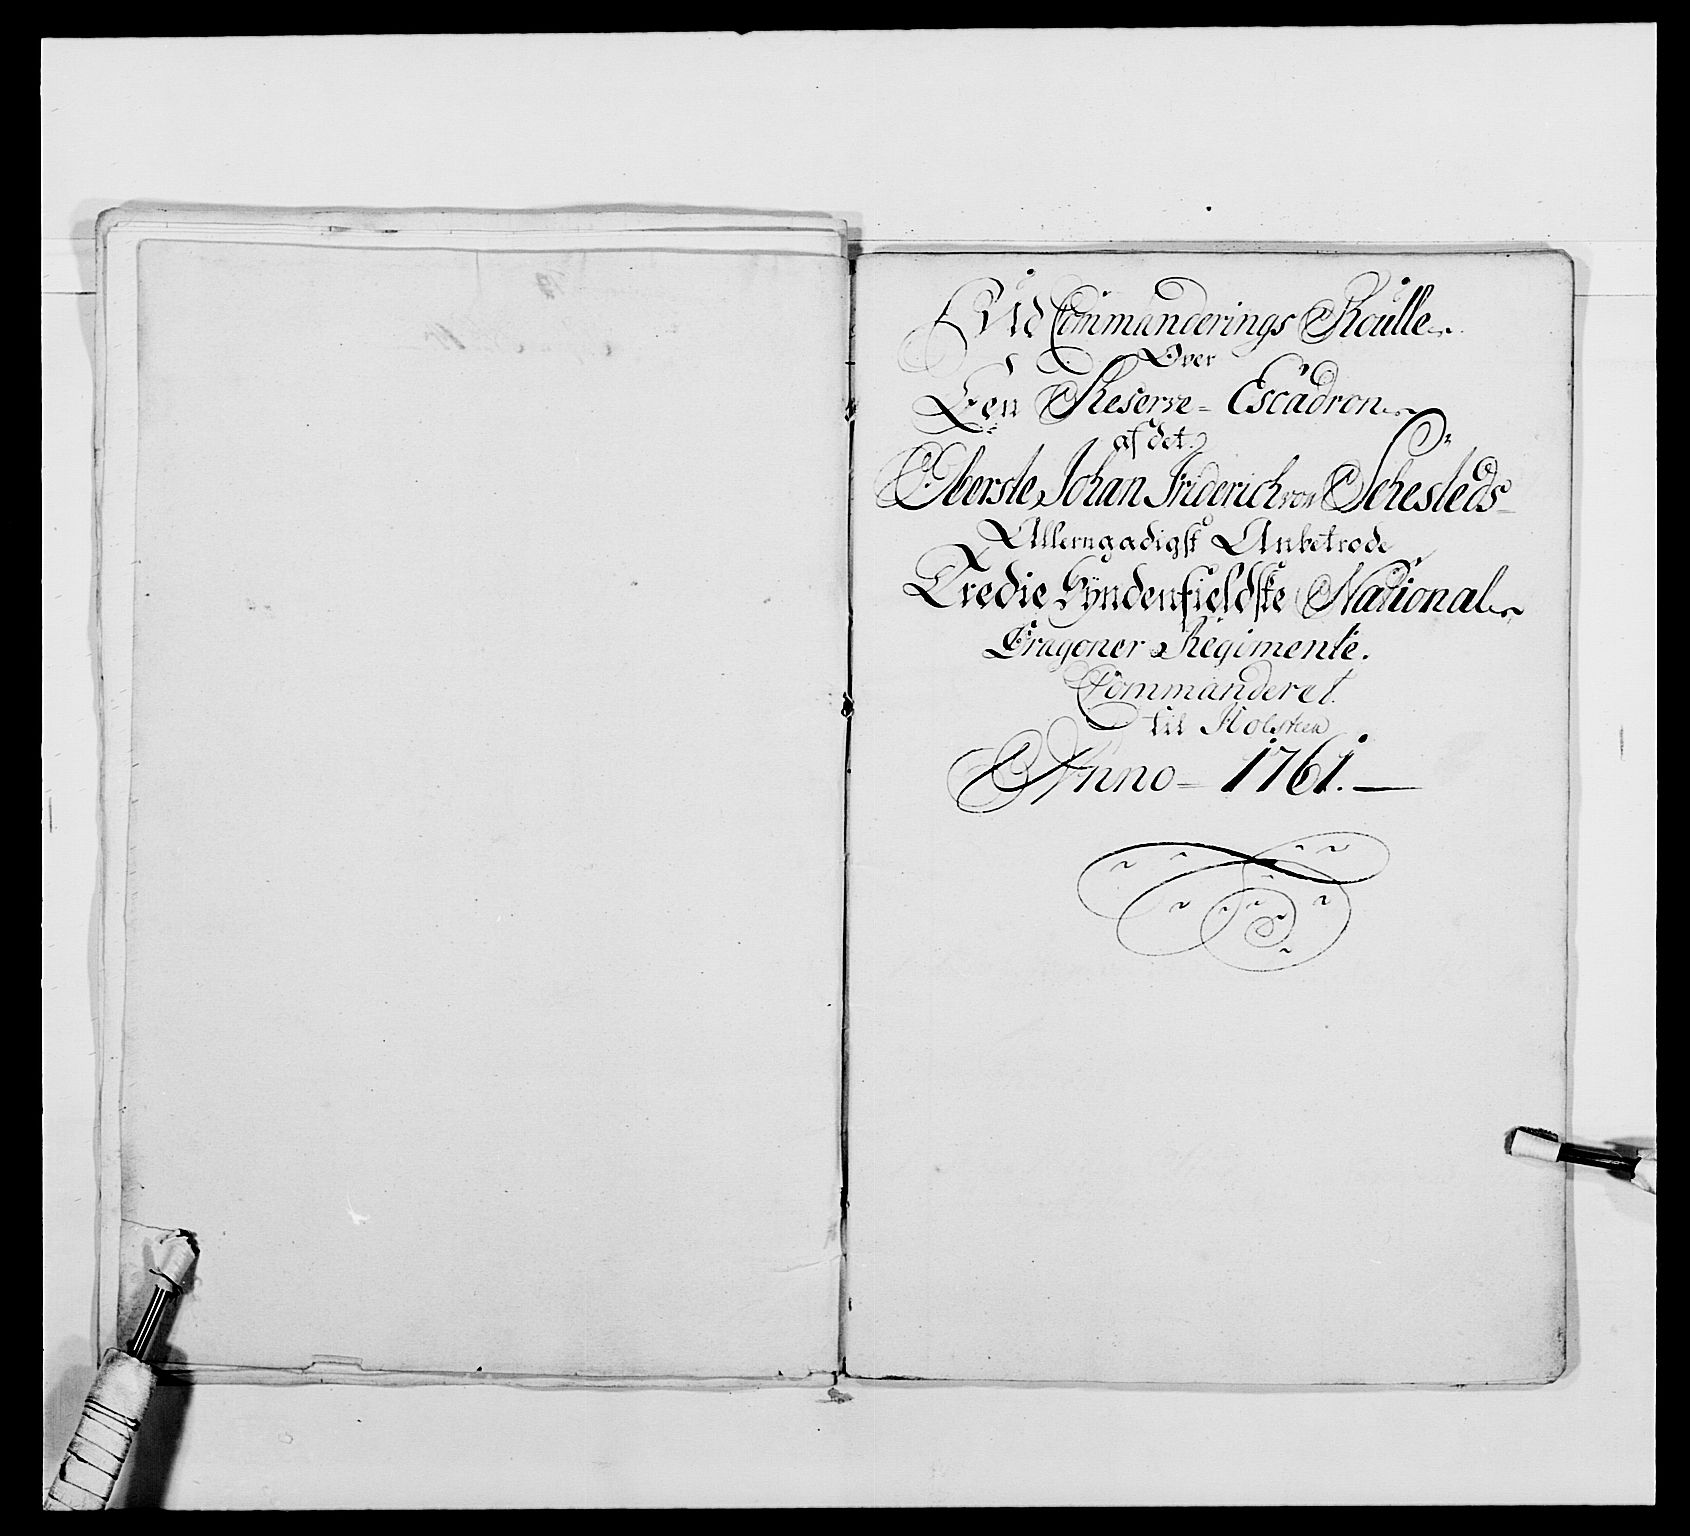 Ud Commanderings Roulle
Over
Een Reserve= Escadron
af det
Oberste Johan Friderich von Schesteds
Allerngadigst Anbetrode
Tredie Syndenfieldske National
Dragoner Regimente.
Commanderet
til Holsten
Anno= 1761.